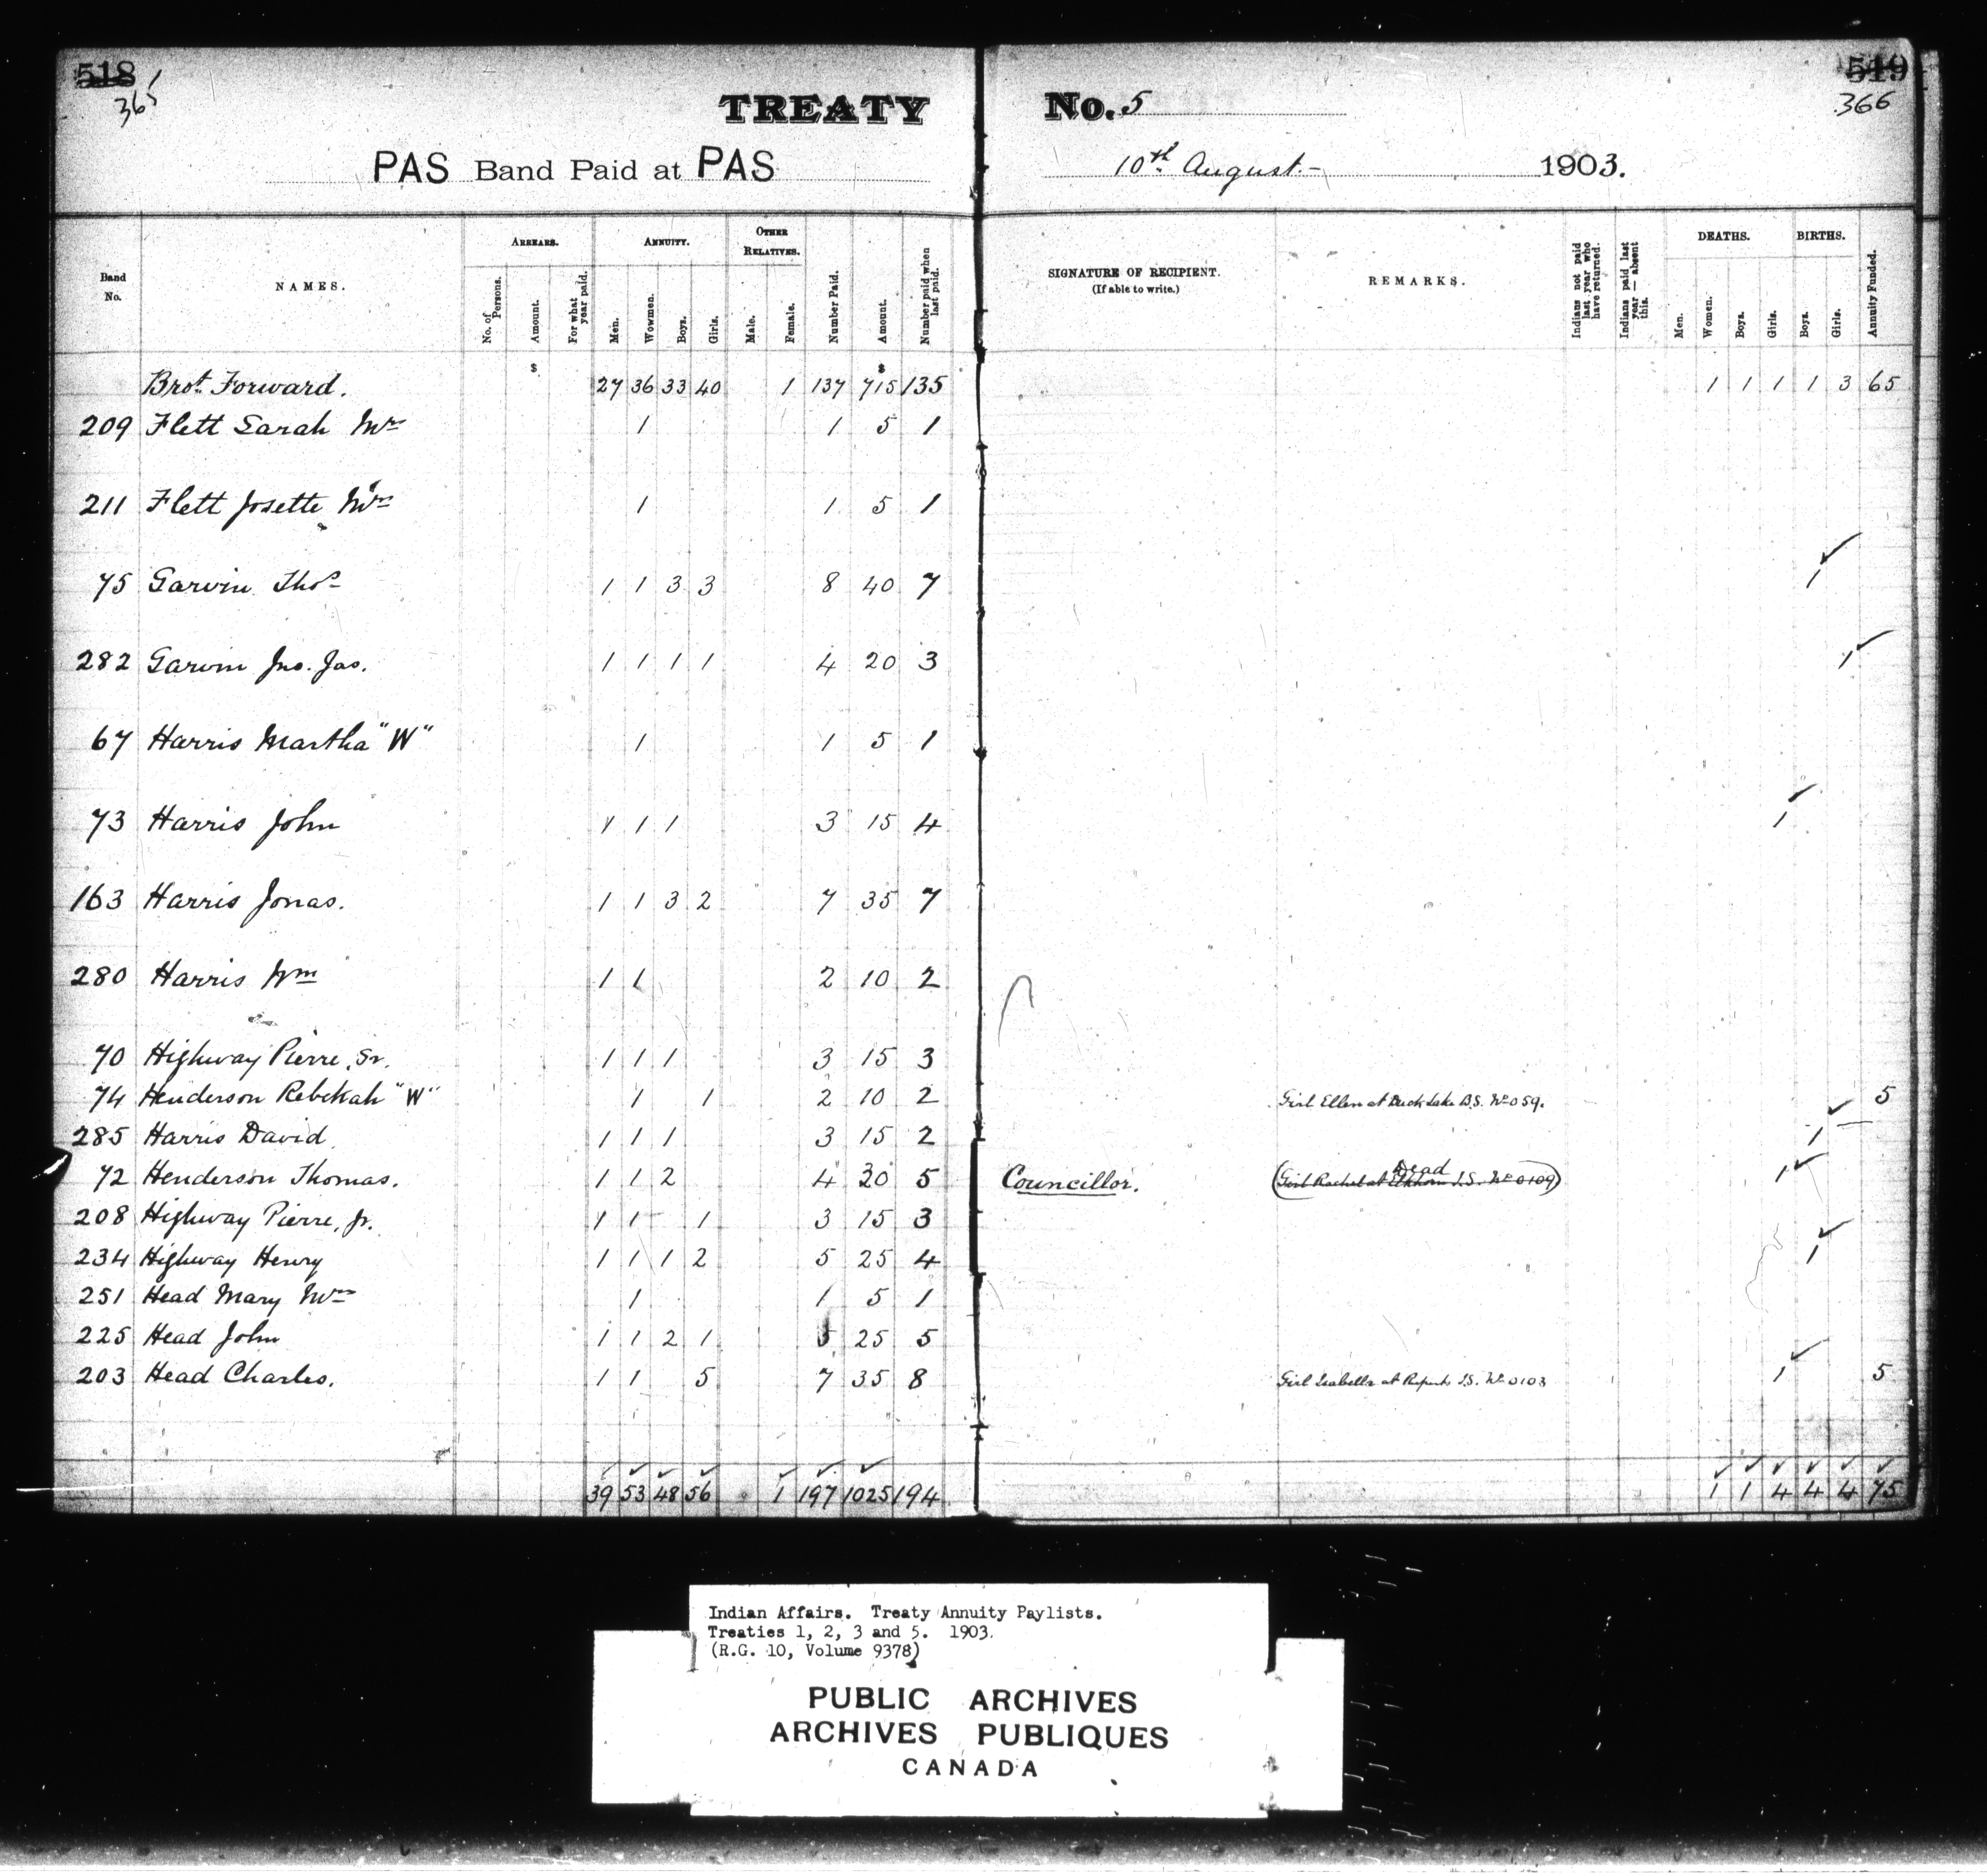 518 519
365 366
TREATY No. 5
PAS Band Paid at PAS 10th August. 1903.
Band No. NAMES. ARREARS. No. of Persons. Amount. For what year paid. ANNUITY. Men. Wowmen. Boys. Girls. OTHER RELATIVES. Male. Female. Number Paid. Amount. Number paid when last paid. SIGNATURE OF RECIPIENT. (If able to write.) REMARKS. Indians not paid last year who have returned. Indians paid last year — absent this. DEATHS. Men. Women. Boys. Girls. BIRTHS. Boys. Girls. Annuity Funded.
$ $
Brot. Forward. 27 36 33 40 1 137 715 135 1 1 1 1 3 65
209 Flett Sarah Mrs 1 1 5 1
211 Flett Josette Mrs 1 1 5 1
75 Garvin Thos 1 1 3 3 8 40 7 1
282 Garvin Jno. Jas. 1 1 1 1 4 20 3 1
67 Harris Martha "W" 1 1 5 1
73 Harris John 1 1 1 3 15 4 1
163 Harris Jonas. 1 1 3 2 7 35 7
280 Harris Wm 1 1 2 10 2
70 Highway Pierre, Sr. 1 1 1 3 15 3
74 Henderson Rebekah "W" 1 1 2 10 2 Girl Ellen at Duck Lake B.S. No 059. 5
285 Harris David 1 1 1 3 15 2 1
72 Henderson Thomas. 1 1 2 4 30 5 Councillor. (Girl Rachel at Elkhorn I.S. No 0109) Dead 1
208 Highway Pierre, Jr. 1 1 1 3 15 3
234 Highway Henry 1 1 1 2 5 25 4 1
251 Head Mary Mrs 1 1 5 1
225 Head John 1 1 2 1 5 25 5
203 Head Charles. 1 1 5 7 35 8 Girl Isabella at Ruperts I.S. No 0103 1 5
39 53 48 56 1 197 1025 194 1 1 4 4 4 75
Indian Affairs. Treaty Annuity Paylists.
Treaties 1, 2, 3 and 5. 1903.
(R.G. 10, Volume 9378)
PUBLIC ARCHIVES
ARCHIVES PUBLIQUES
CANADA